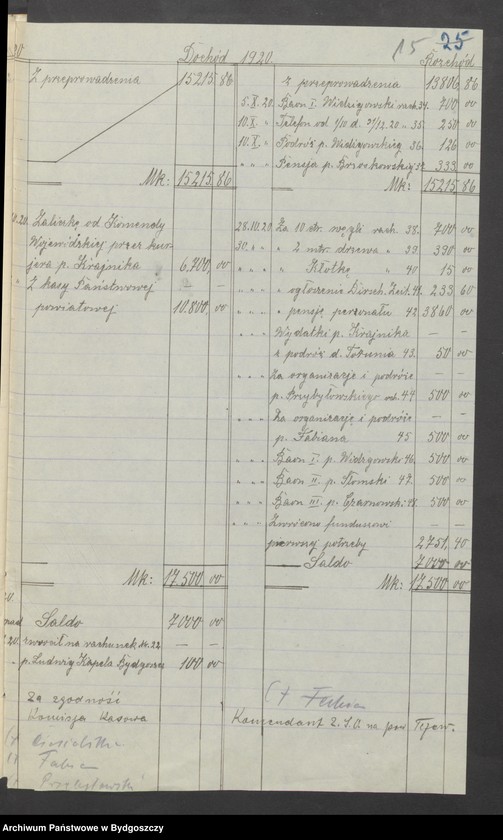 20
Dochód 1920.
15
25
Rozchód
Z przeprowadzenia 15215 86
Z przeprowadzenia 13806 86
5.X.20. Baon I. Wietrzgowski rach 34. 700 00
10.X. " Telefon od 1/10 d. 31/12.20 " 35. 250 00
10.X. " Podróż p. Wietrzgowskiego 36. 126 00
" " " Pensja p. Brzoskowskiego 37. 333 00
Mk: 15215 86
Mk: 15215 86
Zaliczkę od Komendy
Wojewódzkiej przez kur-
jera p. Krajnika 6.700, 00
Z kasy Państwowej
powiatowej 10.800, 00
28.10.20 Za 10 ctr. węgli rach 38. 700 00
30. " " " 2 mtr. drzewa " 39. 390 00
" " " " Kłotkę " 40 15 00
" " " " ogłoszenie Dirsch. Zeit. 41. 233 60
" " " " pensję personału 42 3860 00
" " " Wydatki p. Krajnika — —
z podróż d. Torunia 43. 50 00
" " " Za organizację i podróże — —
p. Przybyłowskiego od. 44 500 00
" " " Za organizację i podróże — —
p. Fabiana 45 500 00
" " " Baon I. p. Wietrzgowski 46. 500 00
" " " Baon II. p. Słomski 47. 500 00
" " " Baon III. p. Czarnowski 48. 500 00
" " " Zwrócono funduszowi — —
pierwszej potrzeby 2751, 40
Saldo 7000 00
Mk: 17.500 00
Mk: 17.500 00
Saldo 7000 00
zwrócił na rachunek Nr. 22 — —
p. Ludwig Kapela Bydgoszcz 100 00
Za zgodność
Komisja Kasowa
Komendant Z.S.O. na pow. Tczew.
Archiwum Państwowe w Bydgoszczy